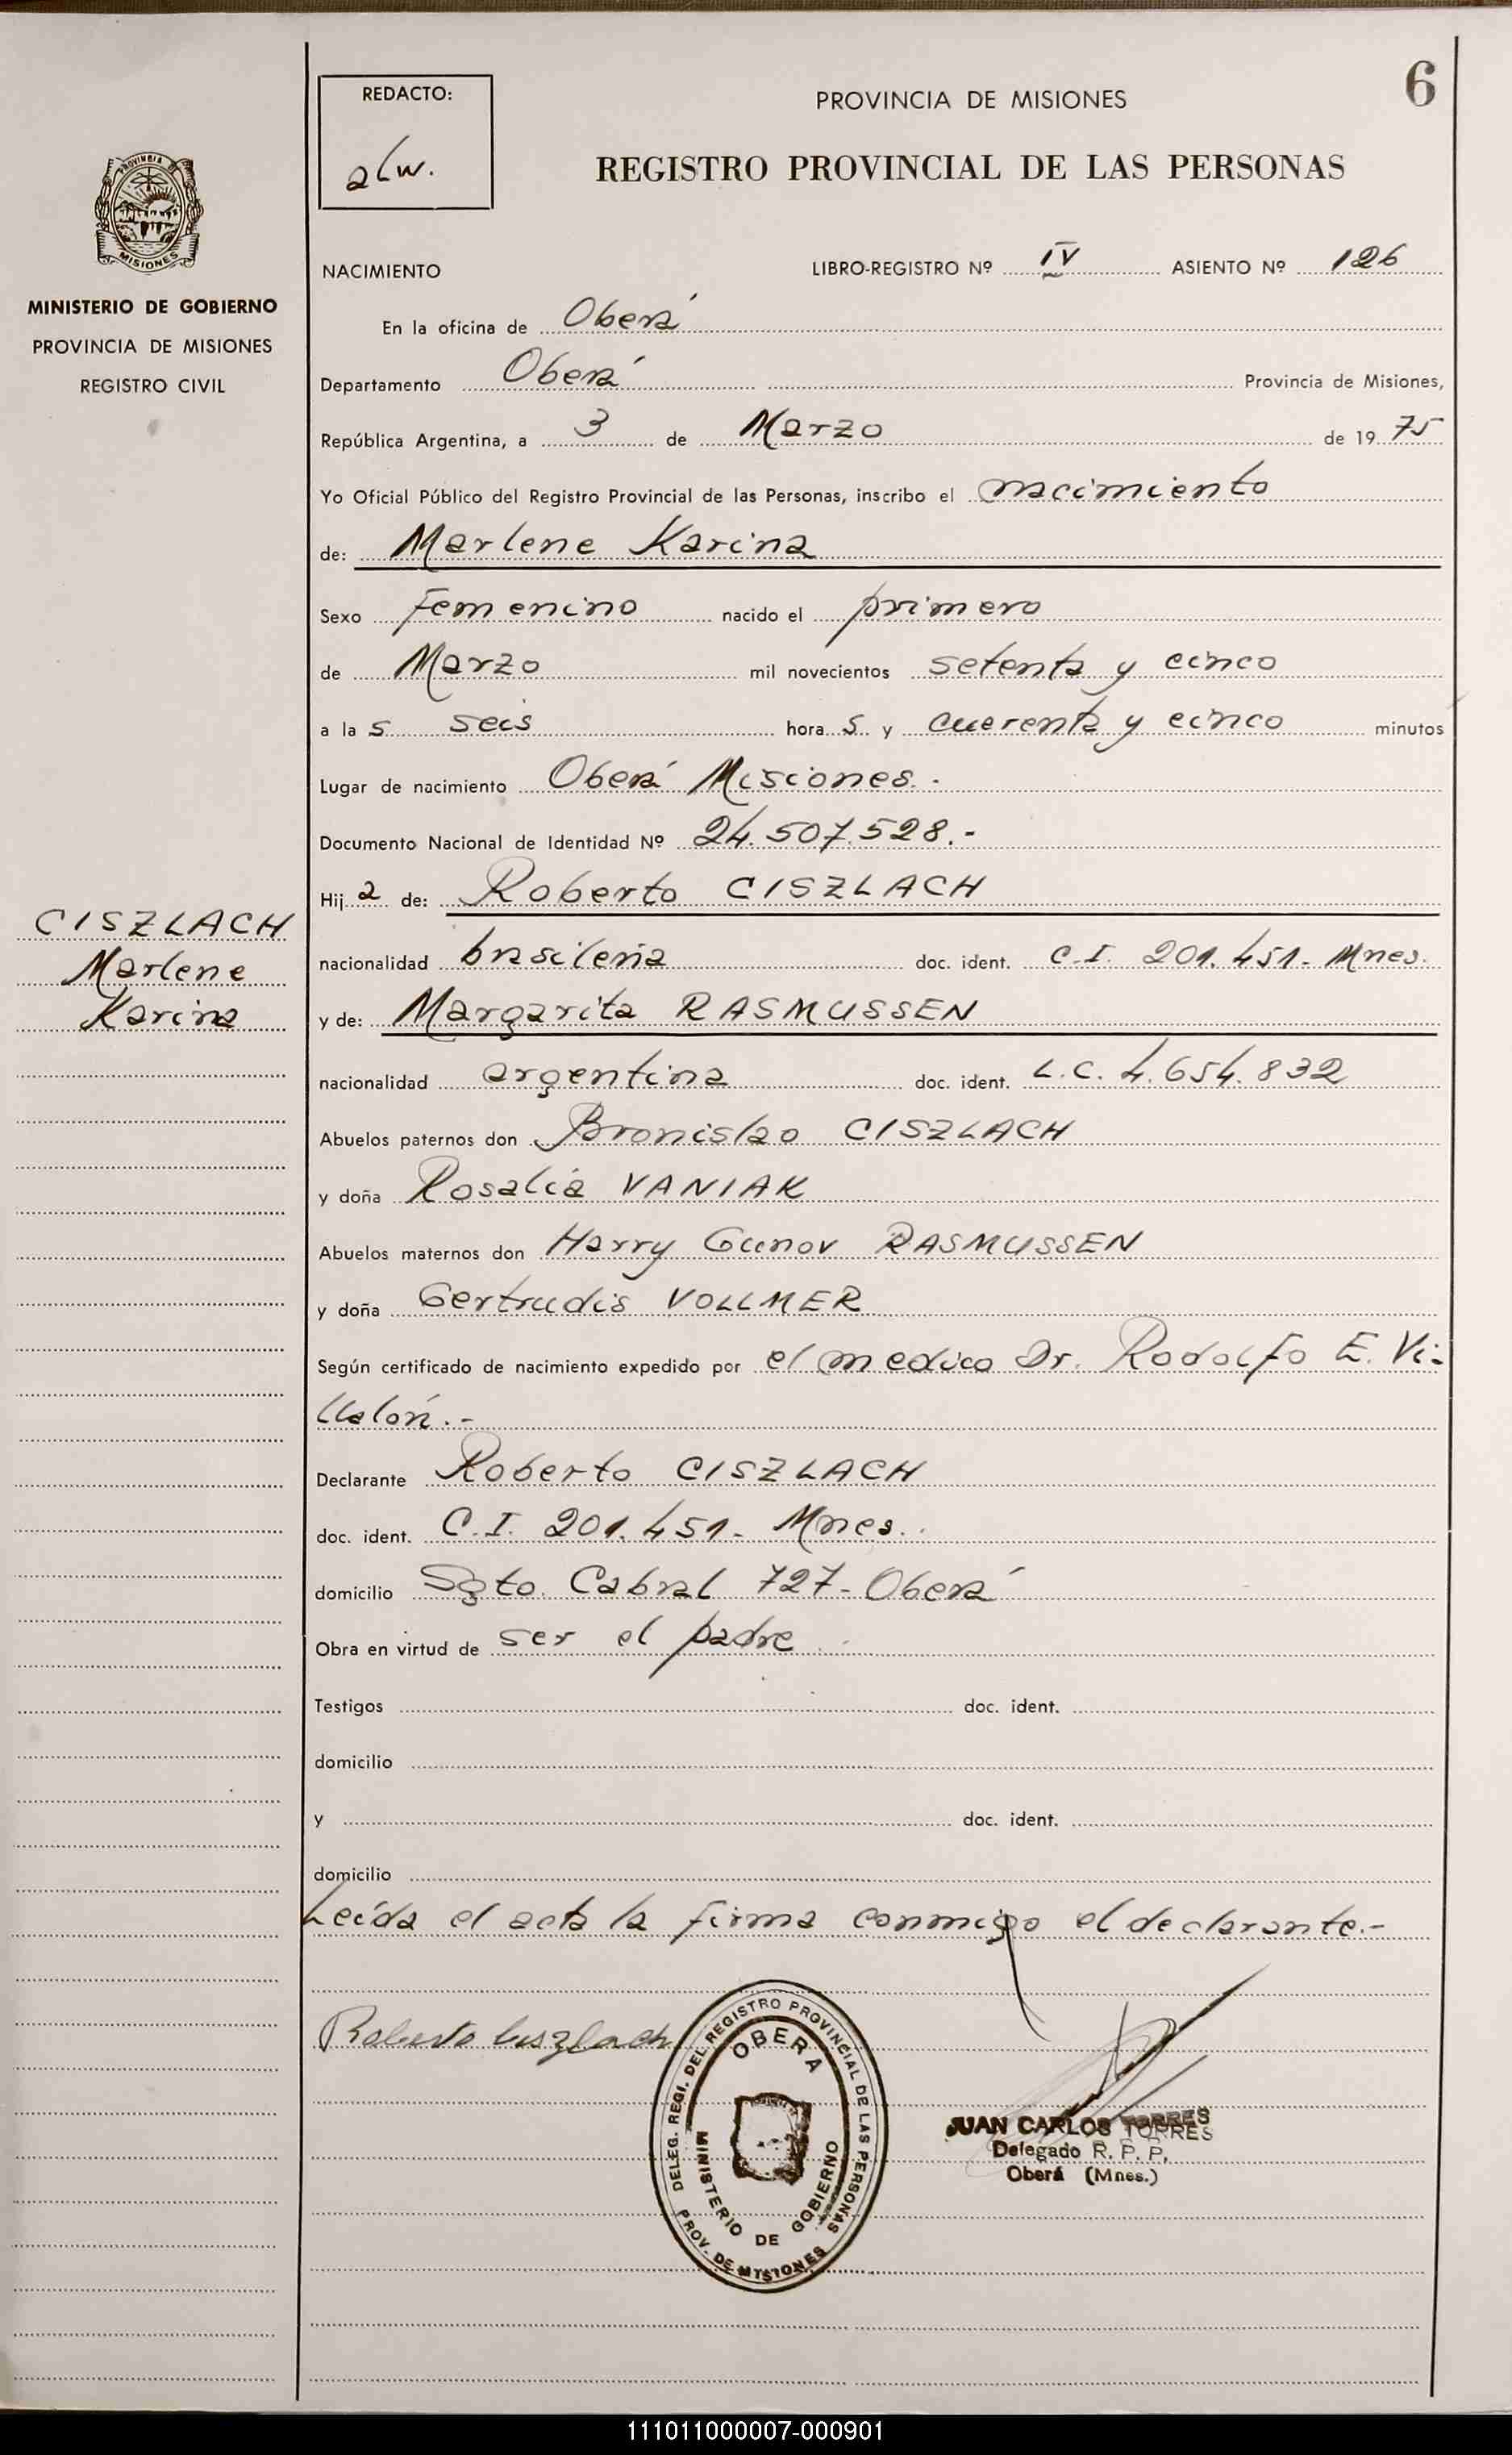 6
REDACTO:
alw.
PROVINCIA DE MISIONES
REGISTRO PROVINCIAL DE LAS PERSONAS
PROVINCIA DE
MISIONES
MINISTERIO DE GOBIERNO
PROVINCIA DE MISIONES
REGISTRO CIVIL
CISZLACH
Marlene
Karina
NACIMIENTO LIBRO-REGISTRO Nº IV ASIENTO Nº 126
En la oficina de Oberá
Departamento Oberá Provincia de Misiones,
República Argentina, a 3 de Marzo de 1975
Yo Oficial Público del Registro Provincial de las Personas, inscribo el nacimiento
de: Marlene Karina
Sexo Femenino nacido el primero
de Marzo mil novecientos setenta y cinco
a las seis horas y cuarenta y cinco minutos
Lugar de nacimiento Oberá Misiones.-
Documento Nacional de Identidad Nº 24.507.528.-
Hija de: Roberto CISZLACH
nacionalidad brasileria doc. ident. C.I. 201.451- Mnes.
y de: Margarita RASMUSSEN
nacionalidad argentina doc. ident. L.C. 4.654.832
Abuelos paternos don Bronislao CISZLACH
y doña Rosalia VANIAK
Abuelos maternos don Harry Gunov RASMUSSEN
y doña Gertrudis VOLLMER
Según certificado de nacimiento expedido por el medico Dr. Rodolfo E. Vi-
llalón.-
Declarante Roberto CISZLACH
doc. ident. C.I. 201.451- Mnes.
domicilio Sgto. Cabral 727- Oberá
Obra en virtud de ser el padre
Testigos doc. ident.
domicilio
y doc. ident.
domicilio
Leída el acta la firma conmigo el declarante.-
Roberto Ciszlach
DELEG. REGI. DEL REGISTRO PROVINCIAL DE LAS PERSONAS
PROV. DE MISIONES
OBERA
MINISTERIO DE GOBIERNO
JUAN CARLOS TORRES
Delegado R. P. P.
Oberá (Mnes.)
111011000007-000901